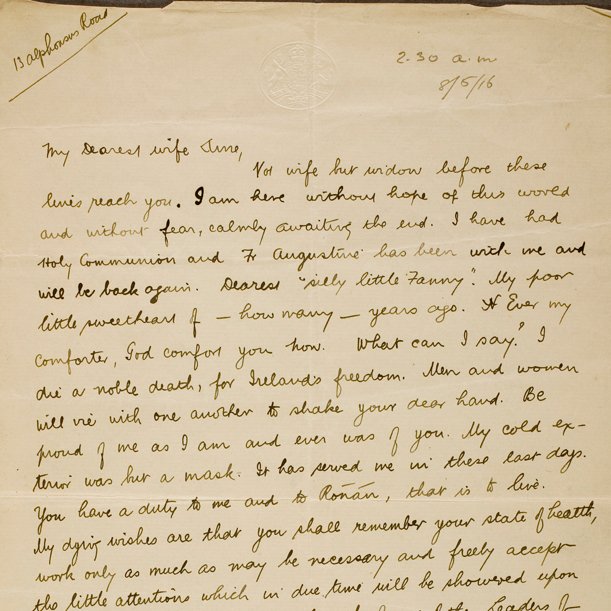 13 Alphonsus Road
2.30 a.m
8/5/16
My Dearest wife Áine,
Not wife but widow before these
lines reach you. I am here without hope of this world
and without fear, calmly awaiting the end. I have had
Holy Communion and Fr Augustine has been with me and
will be back again. Dearest "silly little Fanny". My poor
little sweetheart of — how many — years ago. Ever my
comforter, God comfort you now. What can I say? I
die a noble death, for Ireland's freedom. Men and women
will vie with one another to shake your dear hand. Be
proud of me as I am and ever was of you. My cold ex-
terior was but a mask. It has served me in these last days.
You have a duty to me and to Rónán, that is to live.
My dying wishes are that you shall remember your state of health,
work only as much as may be necessary and freely accept
the little attentions which in due time will be showered upon
leaders of